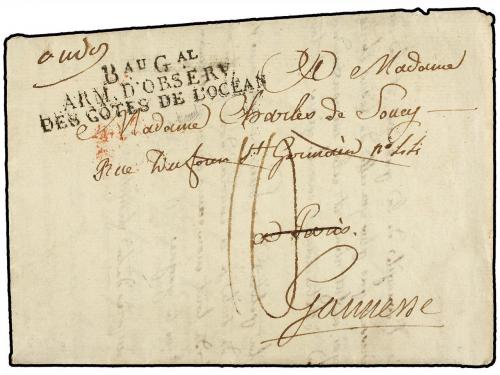 Bau Gal
ARM. D'OBSERV.
DES CÔTES DE L'OCÉAN
A Madame
Madame Charles de Soucy
Rue St Germain n°
a Paris.
Gonnesse